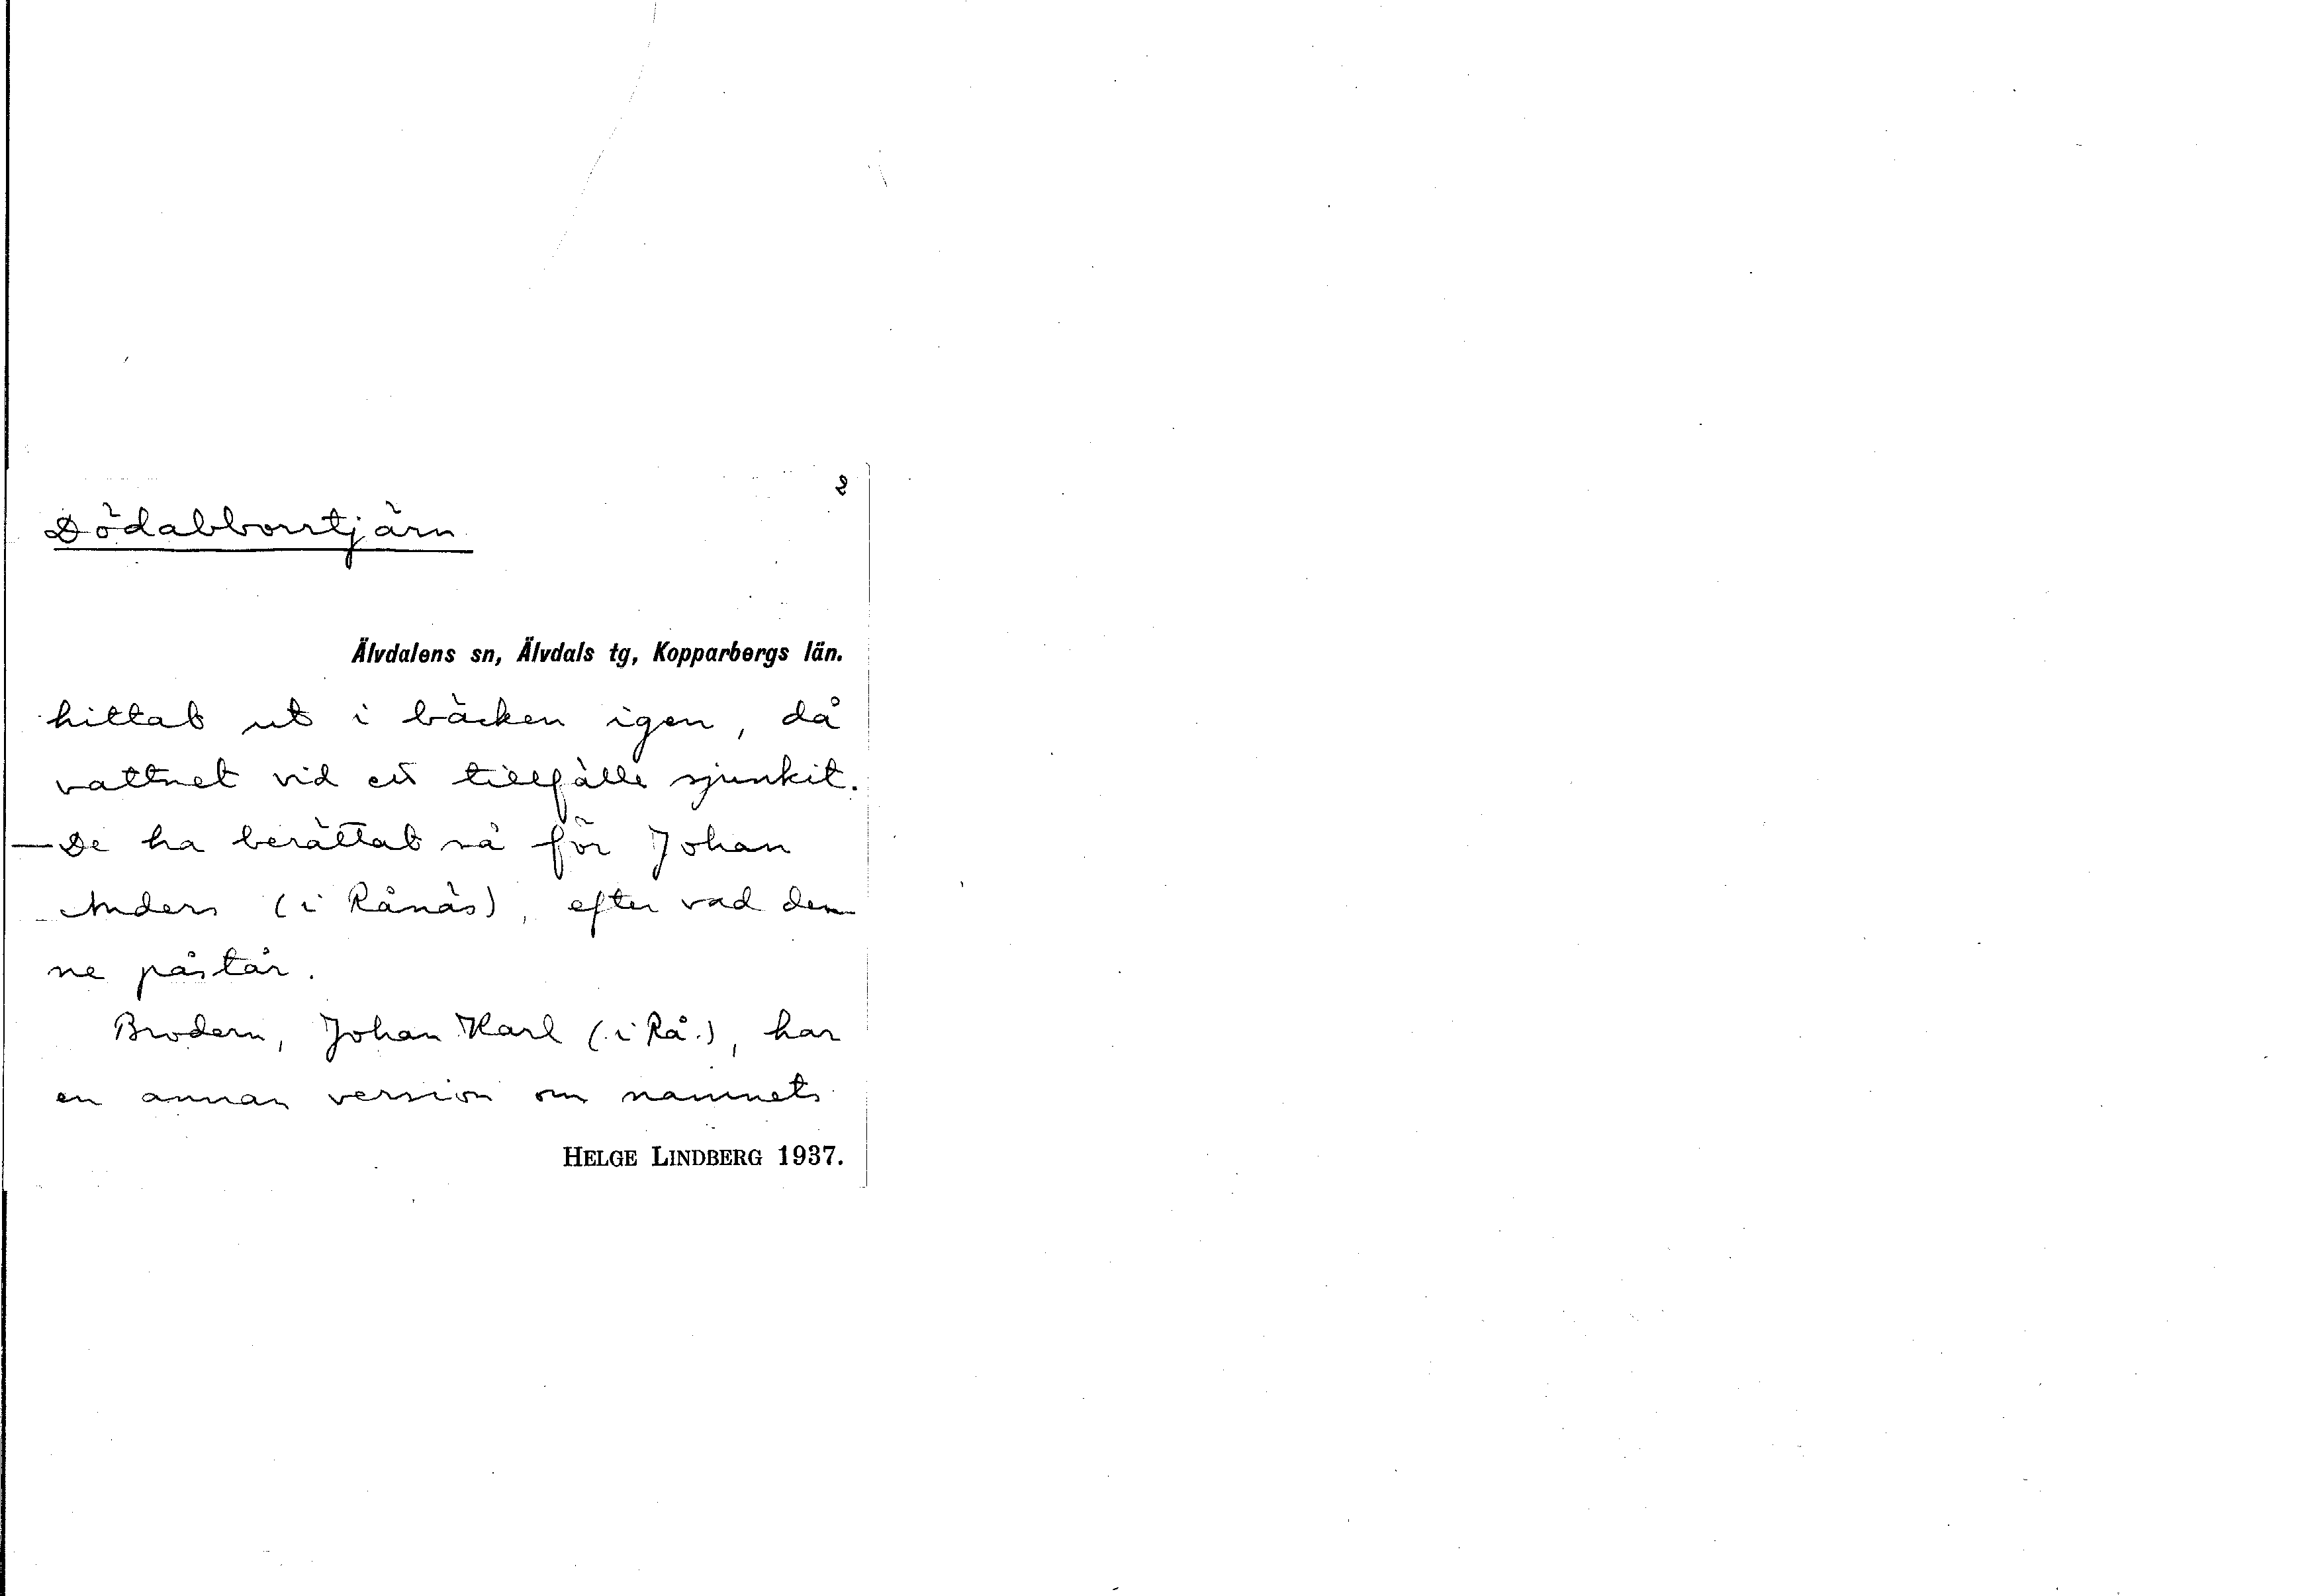 2
Dödabborrtjärn
Älvdalens sn, Älvdals tg, Kopparbergs län.
hittat ut i bäcken igen, då
vattnet vid ett tillfälle sjunkit.
— De ha berättat så för Johan
Anders (i Rånäs), efter vad den
ne påstår.
Brodern, Johan Karl (i Rå.), har
en annan version om namnets
HELGE LINDBERG 1937.